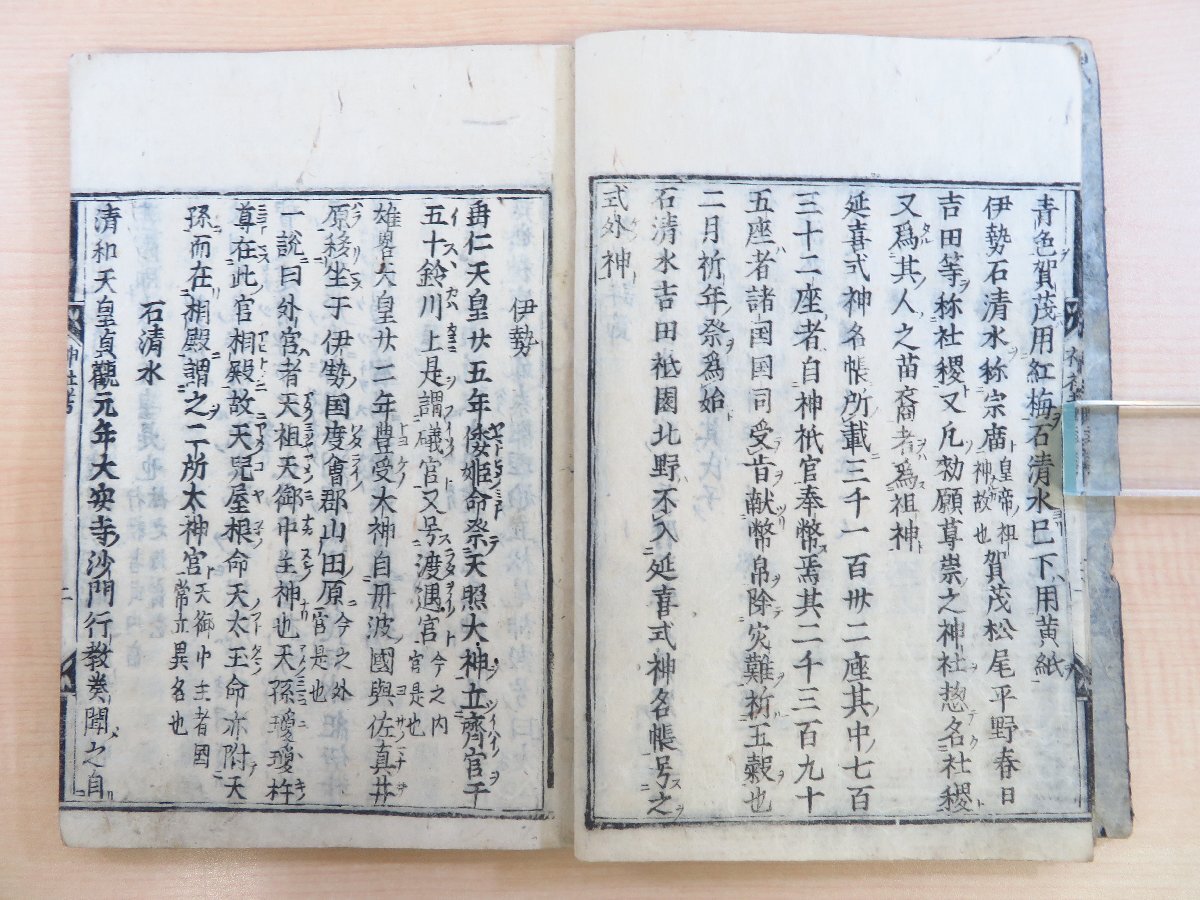 青色賀茂用紅梅石清水已下用黄紙
伊勢石清水称宗廟皇帝祖神故也賀茂松尾平野春日
吉田等称社稷又凡勅願尊崇之神社惣名社稷
又爲其人之苗裔者爲祖神
延喜式神名帳所載三千一百卅二座其中七百
三十二座者自神祇官奉幣焉其二千三百九十
五座者諸国国司受肯献幣帛除災難祈五穀也
二月祈年祭爲始
石清水吉田祇園北野不入延喜式神名帳号之
式外神
伊勢
垂仁天皇廿五年倭姫命祭天照大神立齊宮于
五十鈴川上是謂礒宮又号渡遇宮今之内宮是也
雄畧天皇廿二年豊受大神自丹波國與佐真井
原移坐于伊勢国度會郡山田原今之外宮是也
一説曰外宮者天祖天御中主神也天孫瓊瓊杵
尊在此宮相殿故天兒屋根命天太王命亦附天
孫而在相殿謂之二所太神宮天御中主者國常立異名也
石清水
清和天皇貞觀元年大安寺沙門行教奏聞之自
神社考
二